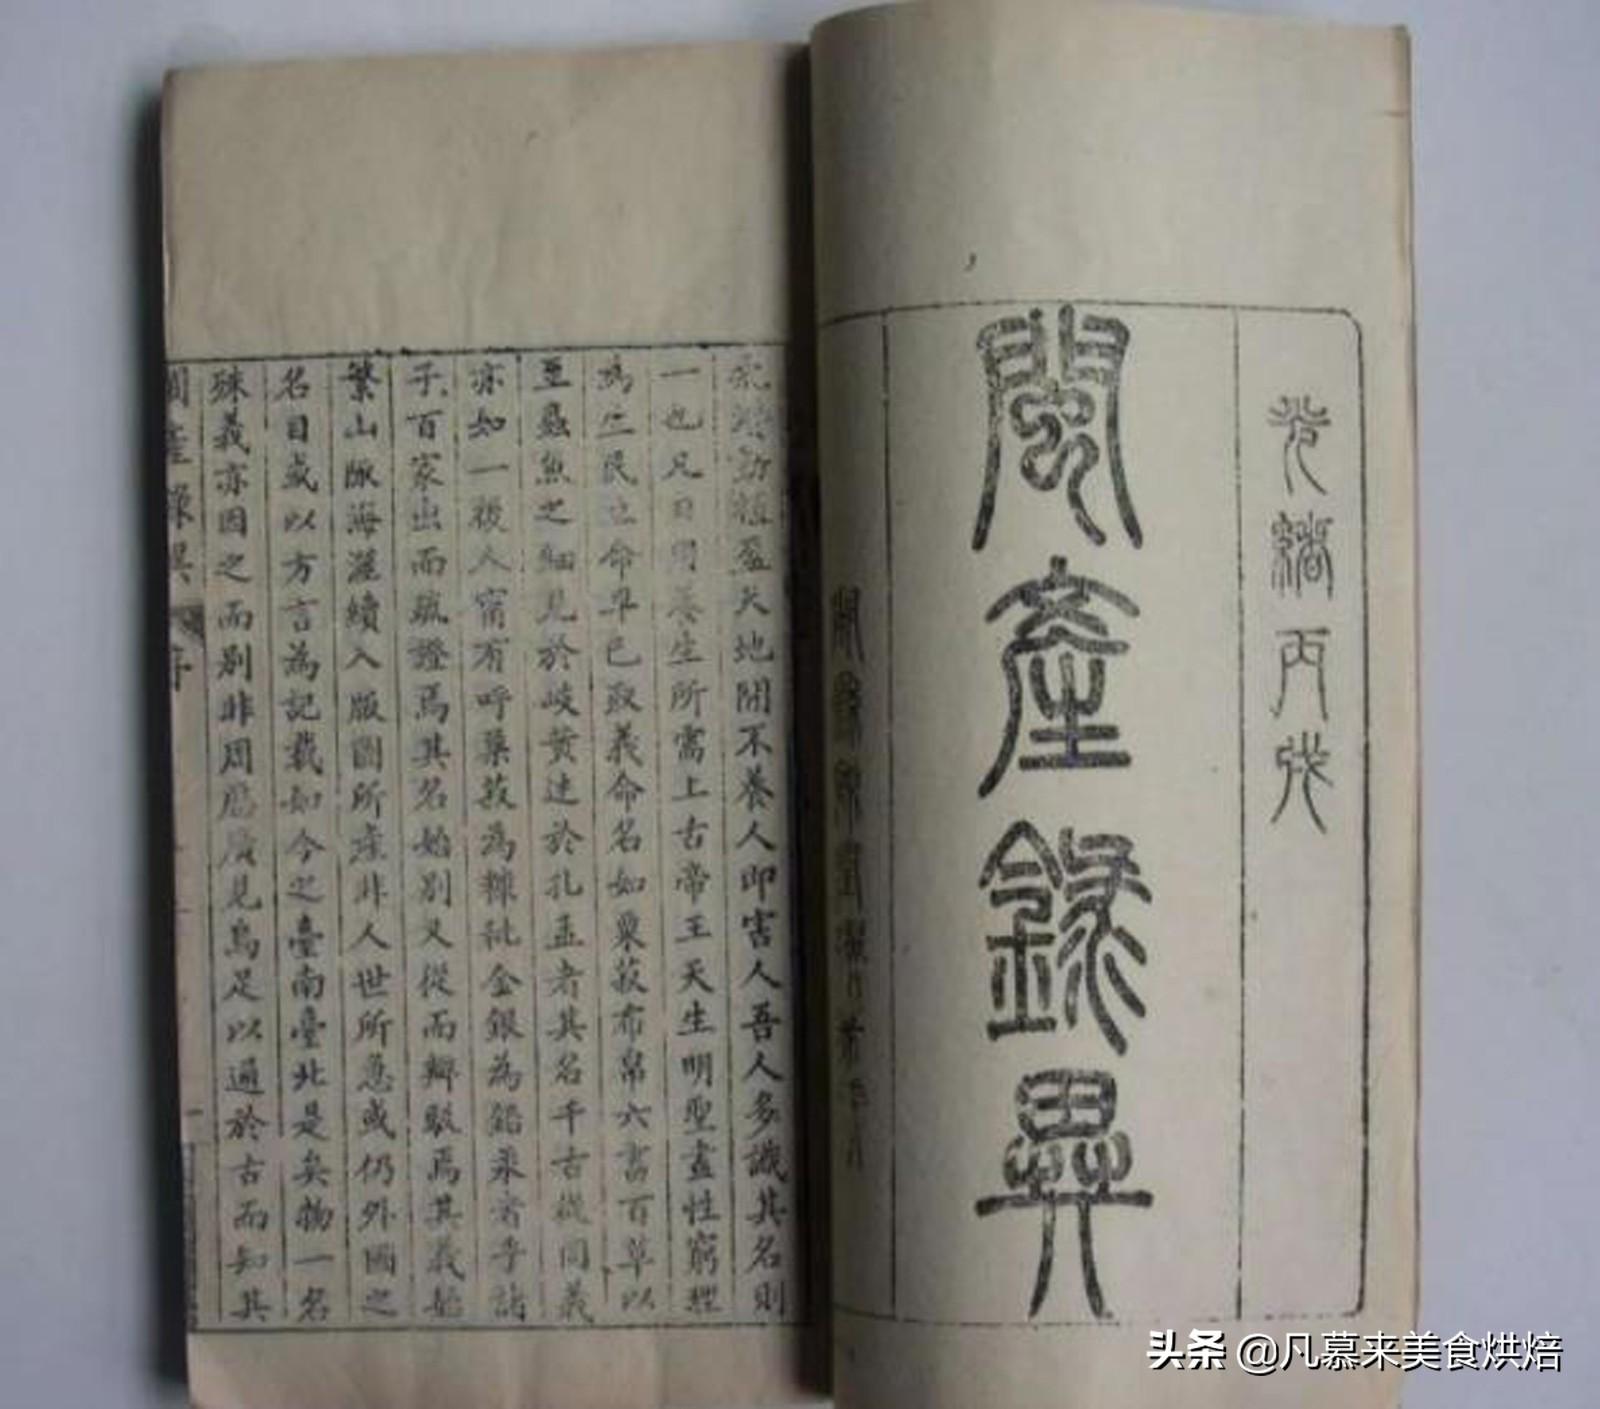 光緒丙戌
閩產錄異
動植盈天地間不養人即害人吾人多識其名則
一也凡日用養生所需上古帝王天生明聖盡性窮理
為生民立命早已取義命名如粟菽布帛六書百草以
至蟲魚之細見於岐黄述於孔孟者其名千古從同義
亦如一後人甯有呼粟菽為糠秕金銀為鉛汞者乎諸
子百家出而疏證焉其名始別又從而辨駁焉其義始
繁山陬海澨續入版圖所產非人世所急或仍外國之
名目或以方言為記載如今之臺南臺北是矣物一名
殊義亦因之而別非周歷廣見烏足以通於古而知其
閩產錄異
序
一
头条 @凡慕来美食烘焙